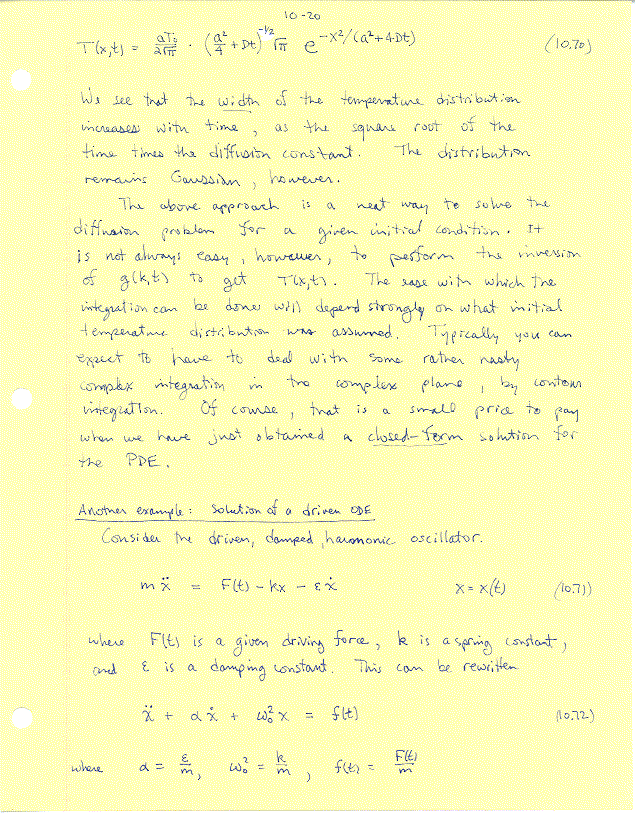 10-20
T(x,t) = aT₀/2√π · (a²/4 + Dt)^-1/2 √π e^-x²/(a²+4Dt) (10.70)
We see that the width of the temperature distribution
increases with time, as the square root of the
time times the diffusion constant. The distribution
remains Gaussian, however.
The above approach is a neat way to solve the
diffusion problem for a given initial condition. It
is not always easy, however, to perform the inversion
of g(k,t) to get T(x,t). The ease with which the
integration can be done will depend strongly on what initial
temperature distribution was assumed. Typically you can
expect to have to deal with some rather nasty
complex integration in the complex plane, by contour
integration. Of course, that is a small price to pay
when we have just obtained a closed-form solution for
the PDE.
Another example: Solution of a driven ODE
Consider the driven, damped, harmonic oscillator.
mẍ = F(t) - kx - εẋ x = x(t) (10.71)
where F(t) is a given driving force, k is a spring constant,
and ε is a damping constant. This can be rewritten
ẍ + αẋ + ω₀²x = f(t) (10.72)
where α = ε/m, ω₀² = k/m, f(t) = F(t)/m